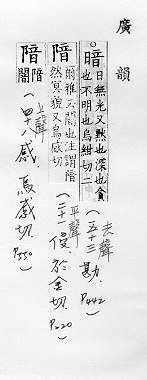 廣韻
暗日無光又默也深也貪
也不明也烏紺切二
(去聲
五十三勘.
P442)
隌爾雅云闇也注謂隌
然冥貌又烏感切
(平聲
二十一侵.於金切.
P220)
隌隌
闇
(上聲
四十八感.烏感切.
P330)